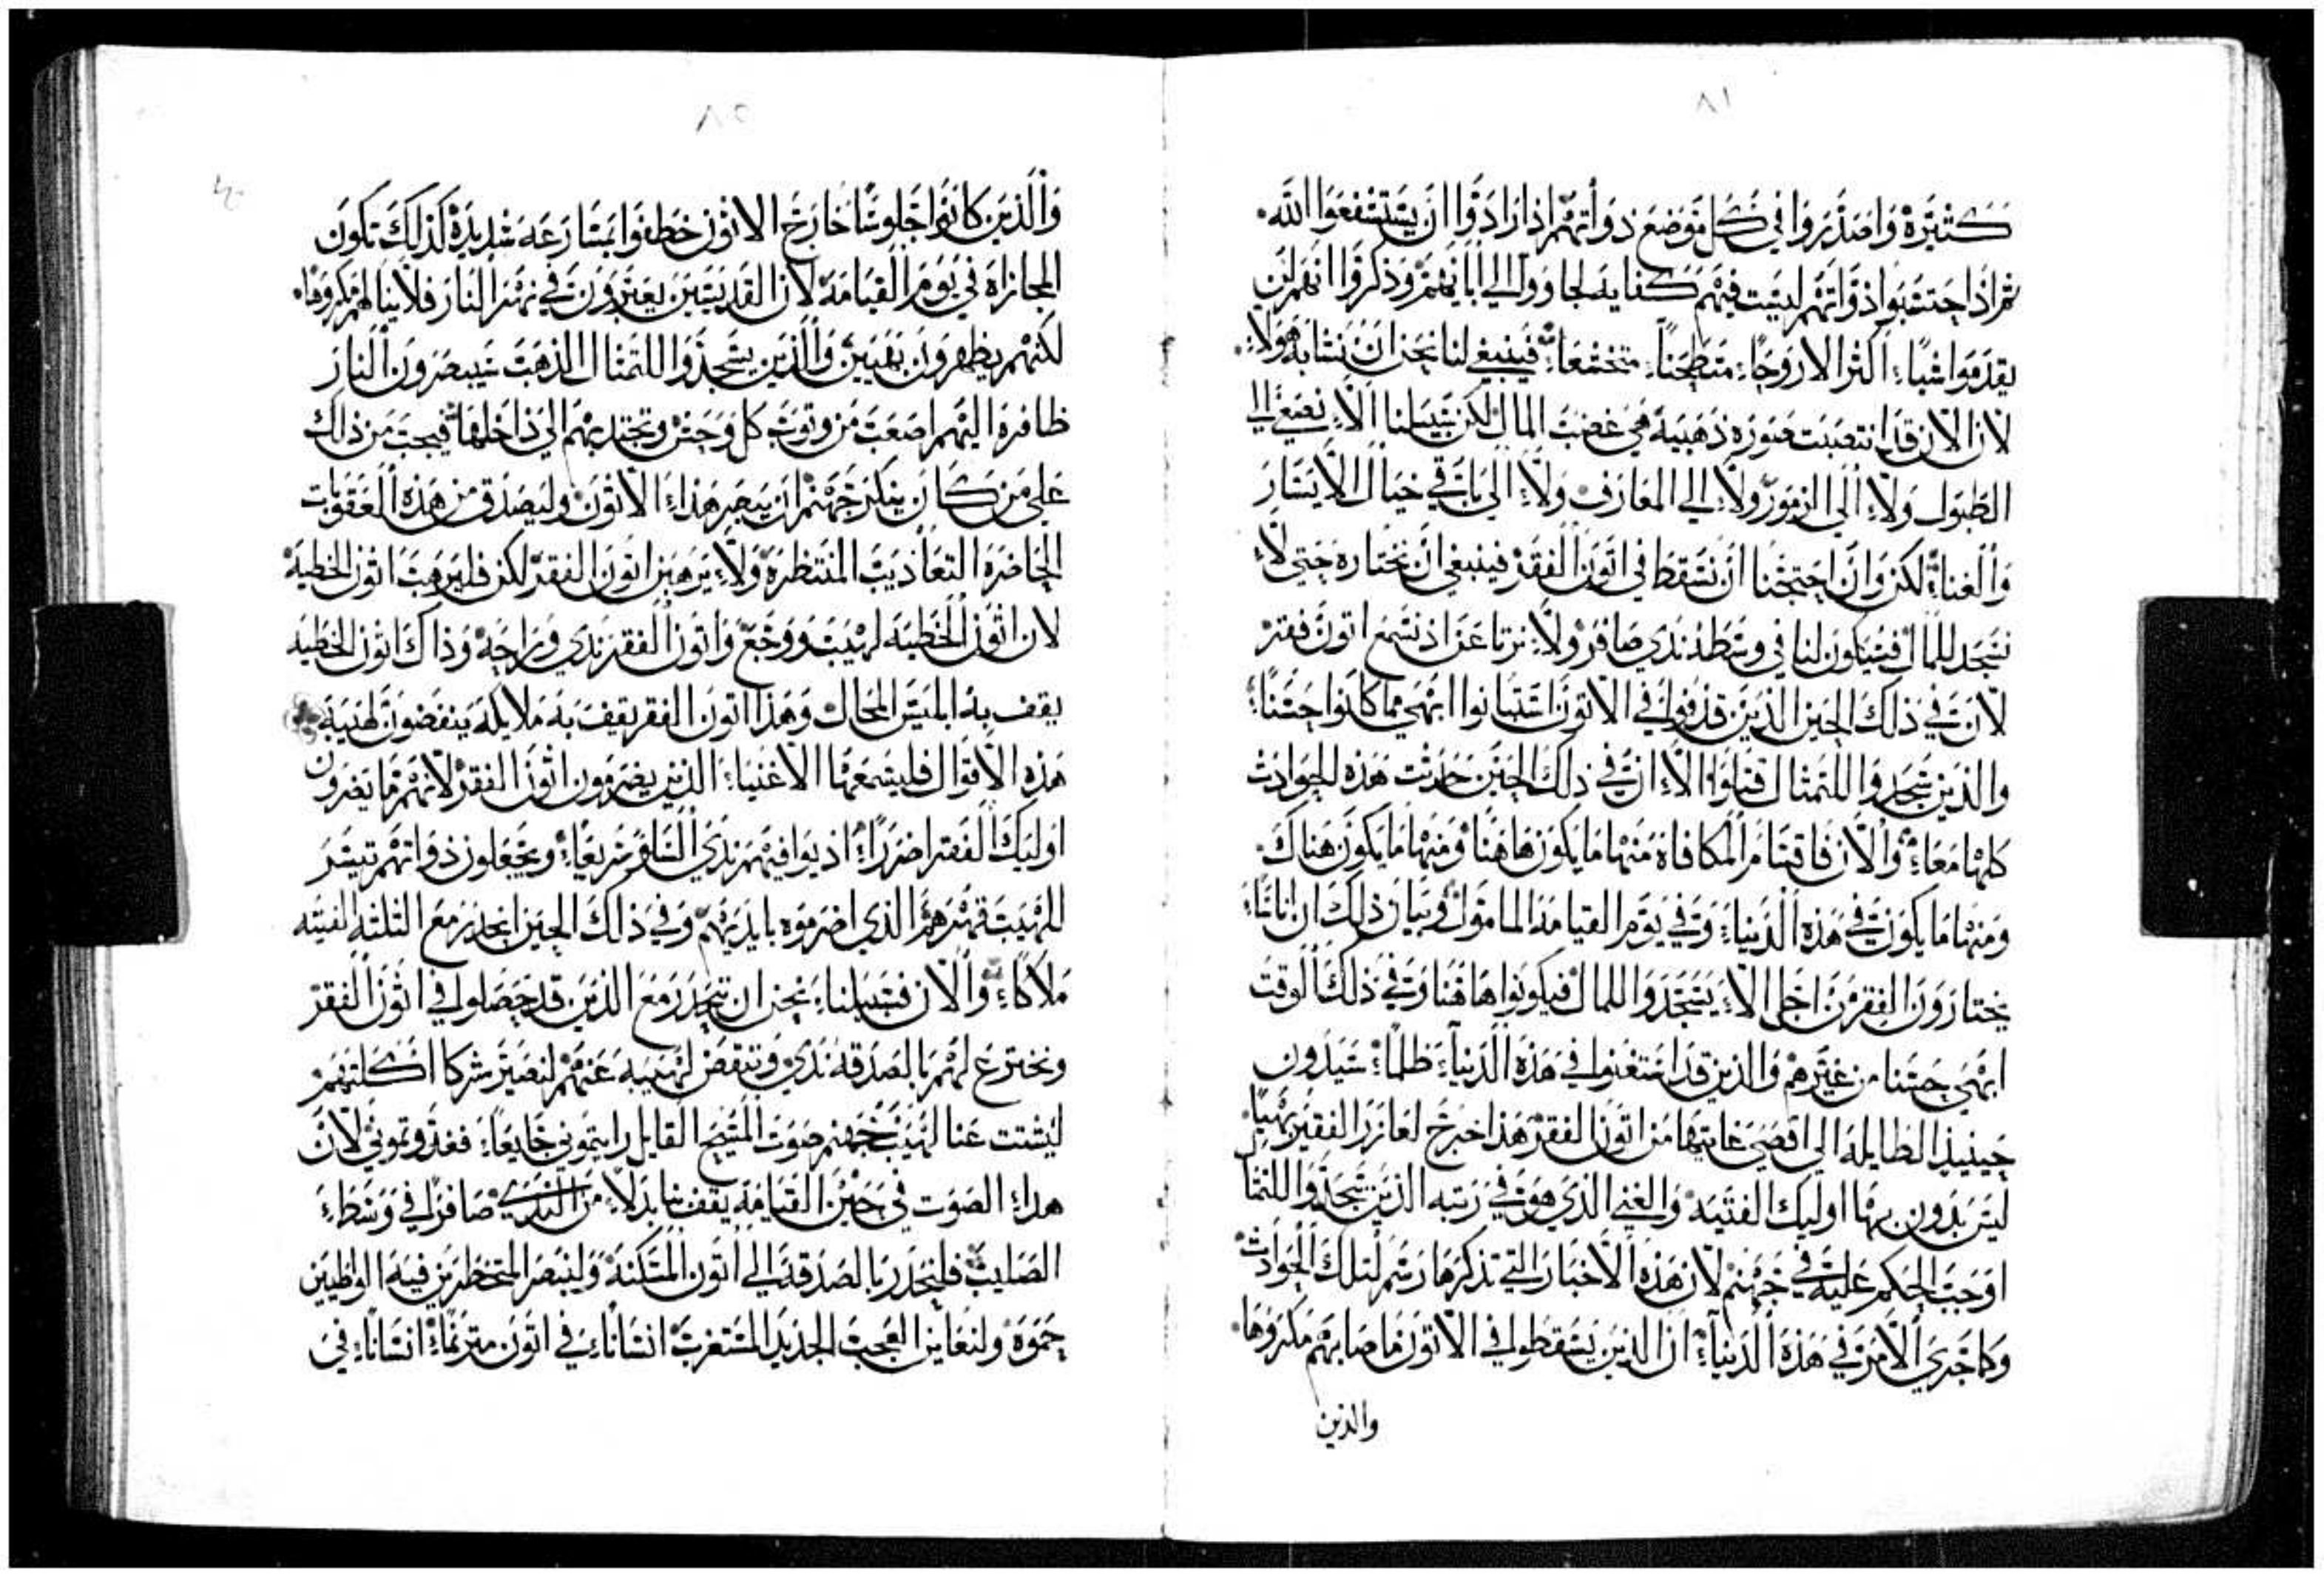 ٨١
كثيرة واصذروا في كل موضع ذواتهم اذا رادوا ان يستشفعوا الله
ثم اذا حتسبوا ذواتهم ليست فيهم كفايه لجا وولا الي ابايهم وذكروا انهم لن
يقدموا شيا اكثر الا روحا منطحنا متخشعا فينبغي لنا نحن ان نشابه هولاء
لان الان قد انتصبت صوره ذهبيه هي غضب المال لكن سبيلنا الا نصغي الي
الطبول ولا الي الزمور ولا الي المعازف ولا الي باقي خيال الايسار
والغناء لكن وان احتجنا ان نسقط في اتون الفقر فينبغي ان نختاره حتي لا
نسجد للمال فسيكون لنا في وسطه ندي صافر ولا نرتاعن اذ نسمع اتون فقر
لان في ذلك الحين الذين قذفوا في الاتون استبانوا ابهي مما كانوا حسنا
والذين سجدوا للتمثال قتلوا الا ان في ذلك الحين حدثت هذه الحوادث
كلها معا والان فاقسام المكافاة منها ما يكون هاهنا ومنها ما يكون هناك
ومنها ما يكون في هذه الدنيا وفي يوم القيامه المامول وبيان ذلك ان اناسا
يختارون الفقر من اجل الا يسجدوا للمال فيكونوا هاهنا وفي ذلك الوقت
ابهي حسنا من غيرهم والذين قد استغنوا في هذه الدنيا ظلما سيدون
حينيذ الطايله الي اقصي غايتها من اتون الفقر هذا خرج لعازر الفقير بهيا
ليس بدون بها اوليك الفتيه والغني الذي هو في رتبه الذين سجدوا للتمثال
اوجب الحكم عليه في جهنم لان هذه الاخبار التي تذكرها رسم لتلك الحوادث
وكما جري الامر في هذه الدنيا ان الذين يسقطوا في الاتون ما صابهم مكروها
والذين
٨٥
والذين كانوا جلوسا خارج الاتون خطفوا بمسارعه شديدة كذلك تكون
المجازاة في يوم القيامة لان القديسين يعبرون في نهر النار فلا ينالهم مكروها
لكنهم يظهرون بهيين والذين يسجدوا للتمثال الذهب سيبصرون النار
ظافرة اليهم اصعب من وثوب كل وحش وتجتذبهم الي داخلها فيجب من ذلك
علي من كان ينكر جهنم ان يبصر هذا الاتون وليصدق من هذه العقوبات
الحاضرة التعاذيب المنتظرة ولا يرهبن اتون الفقر لكن فليرهب اتون الخطية
لان اتون الخطيه لهيب ووجع واتون الفقر ندي وراحه وذاك اتون الخطيه
يقف به ابليس المحال وهذا اتون الفقر يقف به ملايكه ينفضون لهيبه
هذه الاقوال فليسمعها الاغنياء الذين يضرمون اتون الفقر لانهم ما يضرون
اوليك الفقرا ضررا اذ يوافيهم ندي السافر سريعا ويجعلون ذواتهم تيسر
للهيب قهرهم الذي اضرموه بايديهم وفي ذلك الحين انحدر مع الثلثه الفتيه
ملاكا والان فسبيلنا نحن ان نتحدر مع الذين قد حصلوا في اتون الفقر
ونخترع لهم بالصدقه ندي وتنفض لهيبه عنهم لنصير شركا اكلتهم
ليشتت عنا لهيب جهنم صوت المسيح القايل رايتموني جايعا فغذوتموني لان
هذا الصوت في حين القيامه يقف بنا بدلا من الندي صافرا في وسط
الصليب فلنتحدر بالصدقه الي اتون المسكنه ولنبصر المتخطرين فيه الواطيين
جموه ولنعاين العجب الجديد المستغرب انسانا في اتون مترنما انسانا في